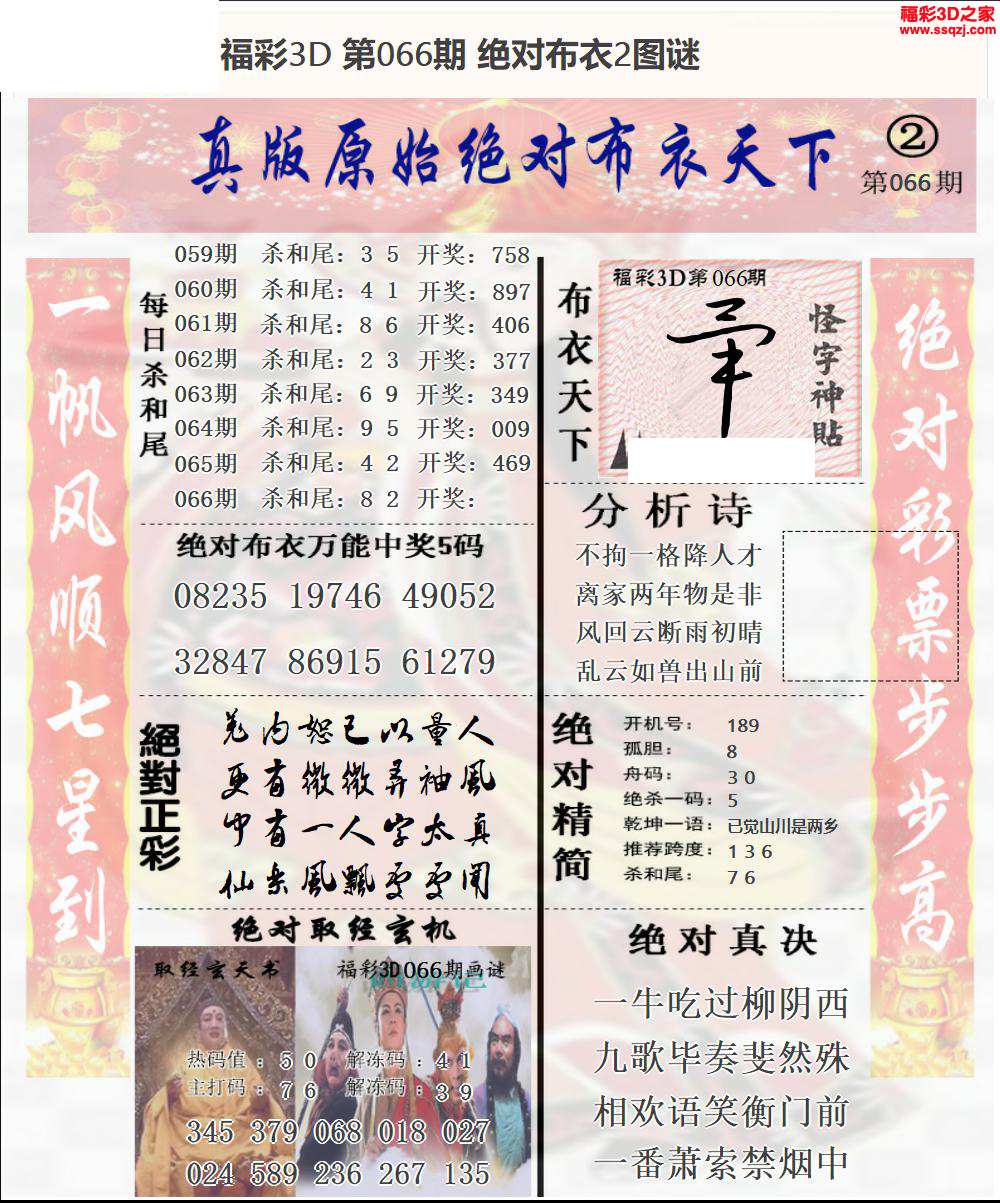 福彩3D之家
www.ssqzj.com
福彩3D 第066期 绝对布衣2图谜
真版原始绝对布衣天下
②
第066期
一帆风顺七星到
每日杀和尾
059期 杀和尾：3 5 开奖：758
060期 杀和尾：4 1 开奖：897
061期 杀和尾：8 6 开奖：406
062期 杀和尾：2 3 开奖：377
063期 杀和尾：6 9 开奖：349
064期 杀和尾：9 5 开奖：009
065期 杀和尾：4 2 开奖：469
066期 杀和尾：8 2 开奖：
绝对布衣万能中奖5码
08235 19746 49052
32847 86915 61279
絕對正彩
羌内恕己以量人
更有微微弄袖風
中有一人字太真
仙乐風飄雯雯闻
绝对取经玄机
取经玄天书
福彩3D066期画谜
热码值：5 0 解冻码：4 1
主打码：7 6 解冻码：3 9
345 379 068 018 027
024 589 236 267 135
布衣天下
福彩3D第066期
怪字神貼
分析诗
不拘一格降人才
离家两年物是非
风回云断雨初晴
乱云如兽出山前
绝对精简
开机号： 189
孤胆： 8
舟码： 3 0
绝杀一码： 5
乾坤一语： 已觉山川是两乡
推荐跨度： 1 3 6
杀和尾： 7 6
绝对真决
一牛吃过柳阴西
九歌毕奏斐然殊
相欢语笑衡门前
一番萧索禁烟中
绝对彩票步步高